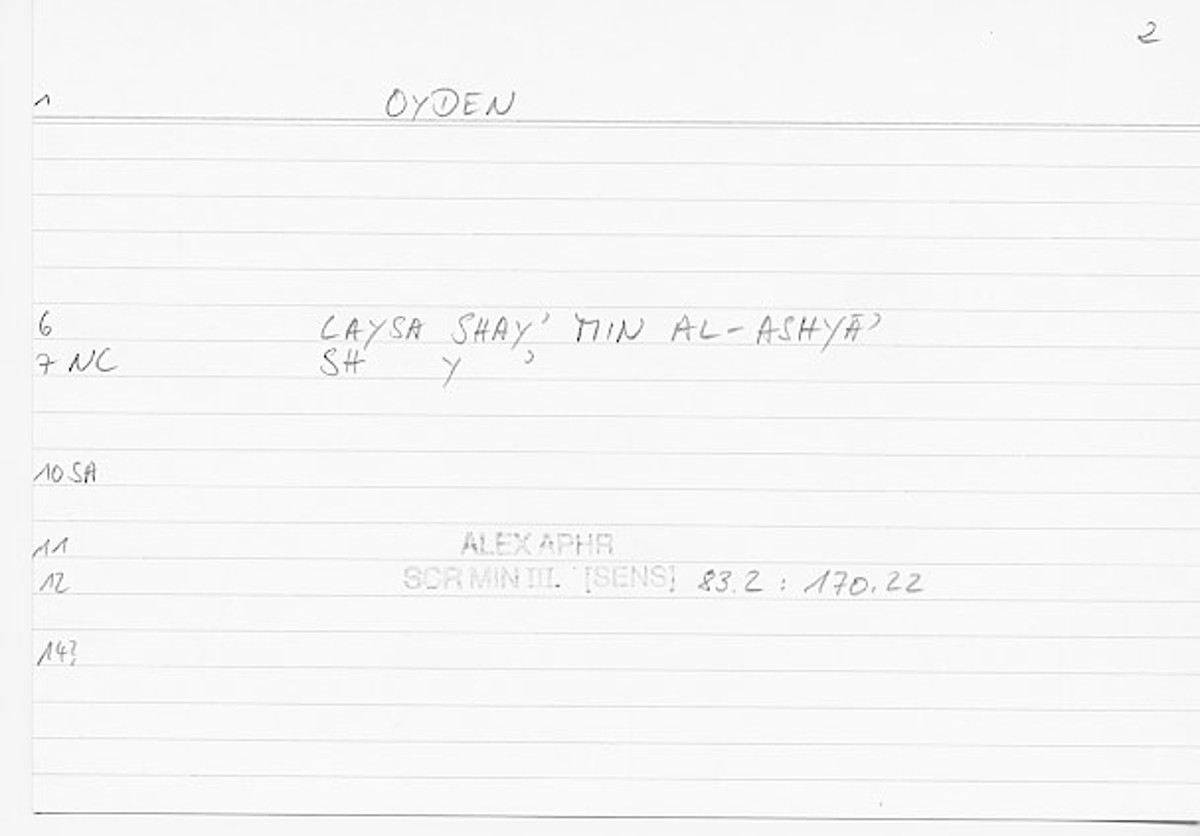 2
1 OYDEN
6 LAYSA SHAY' MIN AL-ASHYĀ'
7 NC SH Y '
10 SA
11 ALEX APHR
12 SCR MIN III. [SENS] 83.2 : 170.22
14?